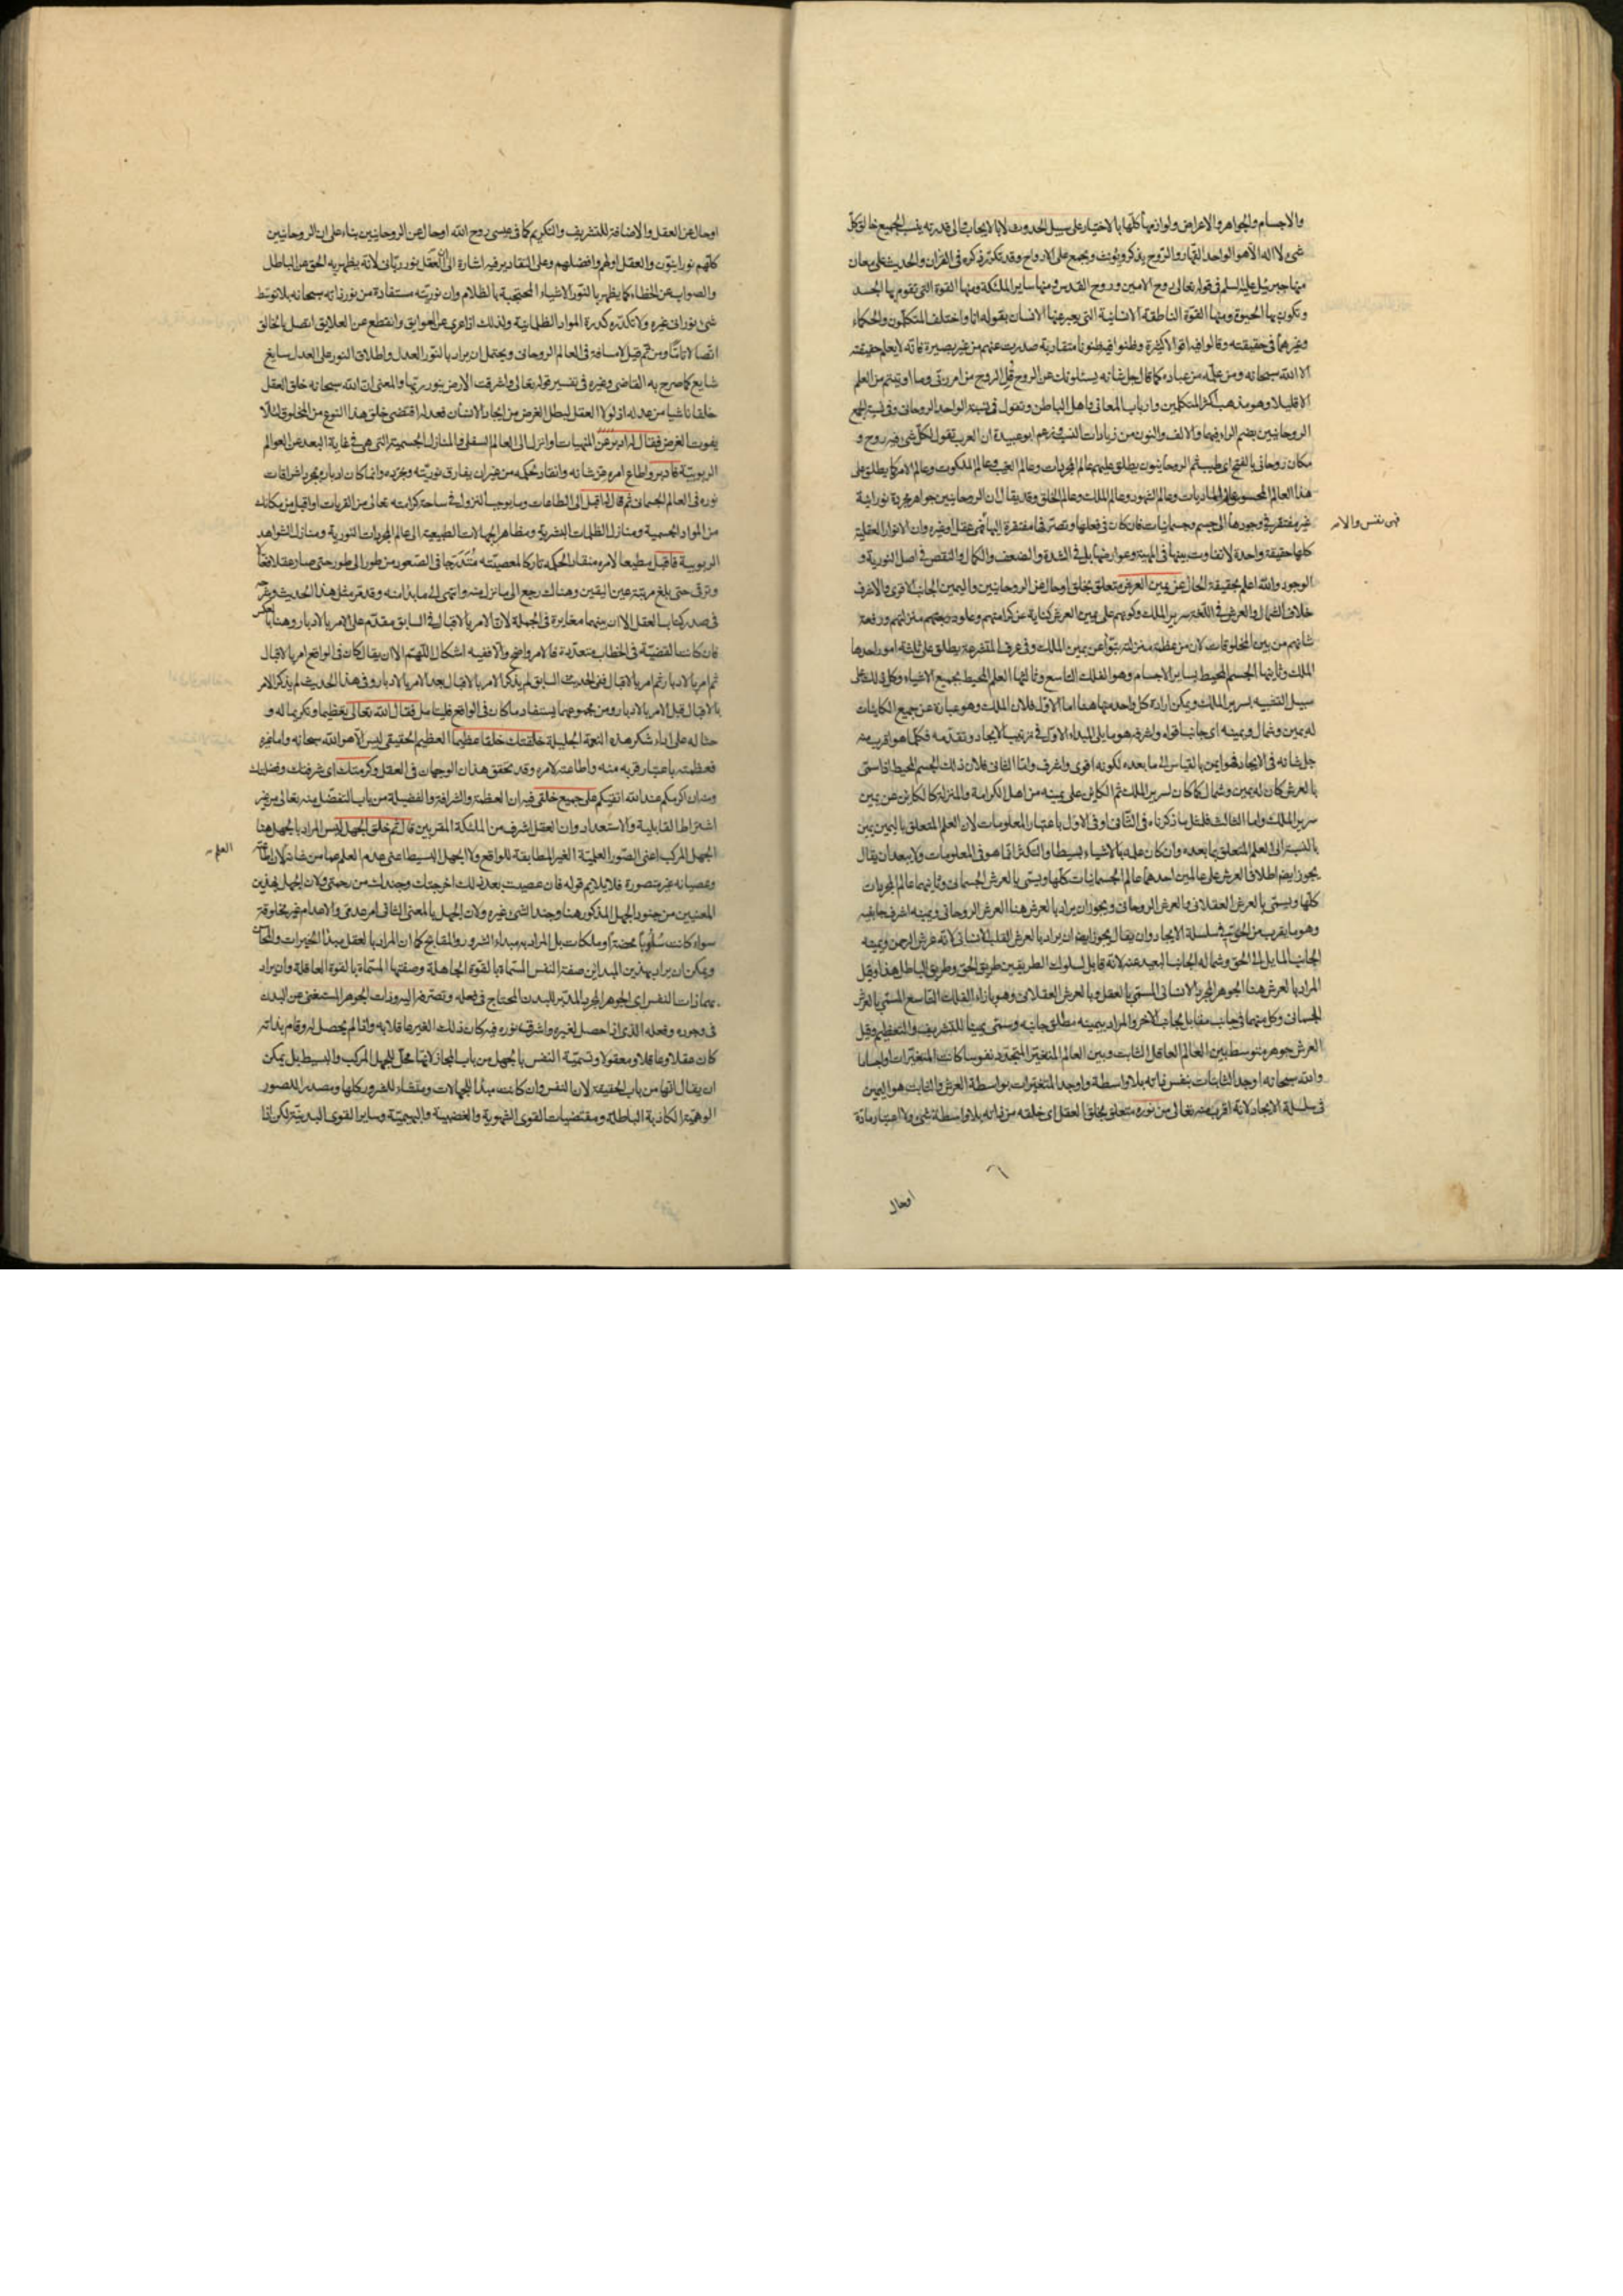 والاجسام والجواهر والاعراض ولوازمها كلها بالاختيار على سبيل الحدوث لا بالايجاب فالى قدرته ينسب الجميع خالق كل
شئ لا اله الا هو الواحد القهار والروح يذكر ويؤنث ويجمع على الارواح وقد تكرر ذكره فى القران والحديث على معان
منها جبرئيل عليه السلم فى قوله تعالى روح الامين وروح القدس ومنها ساير الملئكة ومنها القوة التى تقوم بها الجسد
وتكون بها الحيوة ومنها القوة الناطقة الانسانية التى يعبر عنها الانسان بقوله انا واختلف المتكلمون والحكماء
وغيرهما فى حقيقته وقالوا فيه اقوالا كثيرة وظنوا فيه ظنونا متقاربة صدرت عنهم من غير بصيرة فانه لا يعلم حقيقته
الا الله سبحانه ومن علمه من عباده كما قال جل شانه يسئلونك عن الروح قل الروح من امر ربى وما اوتيتم من العلم
الا قليلا وهو مذهب اكثر المتكلمين وارباب المعانى واهل الباطن وتقول فى نسبة الواحد الروحانى وفى نسبة الجمع
الروحانيين بضم الراء فيهما والالف والنون من زيادات النسب وزعم ابو عبيدة ان العرب تقول لكل شئ فيه روح و
مكان روحانى بالفتح اى طيب ثم الروحانيون يطلق عليهم عالم المجردات وعالم الغيب وعالم الملكوت وعالم الامر كما يطلق على
هذا العالم المحسوس عالم الماديات وعالم الشهود وعالم الملك وعالم الخلق وقد يقال ان الروحانيين جواهر مجردة نورانية
غير مفتقرة فى وجودها الى جسم وجسمانيات فان كان فى فعلها وتصرفها مفتقرة اليها فهى عقل او غيره وان الانوار العقلية
فهى نفس والا
كلها حقيقة واحدة لا تفاوت بينها فى المهية وعوارضها بل فى الشدة والضعف والكمال والنقص فى اصل النورية و
الوجود والله اعلم بحقيقة الحال عن يمين العرش متعلق بخلق او حال عن الروحانيين واليمين الجانب الاقوى والاشرف
خلاف الشمال والعرش فى اللغة سرير الملك وكونهم على يمين العرش كناية عن كرامتهم وعلو درجتهم ومنزلتهم ورفعة
شانهم من بين المخلوقات لان من عظمه منزلته تبوأ عن يمين الملك وفى عرف المتشرعة يطلق على ثلثة امور احدها
الملك وثانيها الجسم المحيط بساير الاجسام وهو الفلك التاسع وثالثها العلم المحيط بجميع الاشياء وكل ذلك على
سبيل التشبيه بسرير الملك ويمكن ارادة كل واحد منها هنا اما الاول فلان الملك وهو عبارة عن جميع الكاينات
له يمين وشمال ويمينه اى جانبه اقواه واشرفه هو ما يلى المبداء الاول فى ترتيب الايجاد وتقدمه فكلما هو اقرب منه
جل شانه فى الايجاد فهو ايمن بالقياس الى ما بعده لكونه اقوى واشرف واما الثانى فلان ذلك الجسم المحيط اذا سمى
بالعرش كان له يمين وشمال كما كان لسرير الملك ثم الكاين على يمينه من اهل الكرامة والمنزلة كالكاين عن يمين
سرير الملك واما الثالث فلمثل ما ذكرناه فى الثانى وفى الاول باعتبار المعلومات لان العلم المتعلق باليمين يمين
بالنسبة الى العلم المتعلق بما بعده وان كان علمه بالاشياء بسيطا والتكثر انما هو فى المعلومات ولا يبعد ان يقال
يجوز ايضا اطلاق العرش على عالمين احدهما عالم الجسمانيات كلها ويسمى بالعرش الجسمانى وثانيهما عالم المجردات
كلها ويسمى بالعرش العقلانى والعرش الروحانى ويجوز ان يراد بالعرش هنا العرش الروحانى ويمينه اشرف جانبيه
وهو ما يقرب من الحق فى سلسلة الايجاد وان يقال يجوز ايضا ان يراد بالعرش القلب الانسانى لانه عرش الرحمن ويمينه
الجانب المايل الى الحق وشماله الجانب البعيد عنه لانه قابل لسلوك الطريقين طريق الحق وطريق الباطل هذا وقيل
المراد بالعرش هنا الجوهر المجرد الانسانى المسمى بالعقل وبالعرش العقلانى وهو بازاء الفلك التاسع المسمى بالعرش
الجسمانى وكل منهما فى جانب مقابل لجانب الاخر والمراد بيمينه مطلق جانبه وسمى يمينا للتشريف والتعظيم وقيل
العرش جوهر متوسط بين العالم العاقل الثابت وبين العالم المتغير المتجدد نفوسا كانت المتغيرات او اجساما
والله سبحانه اوجد الثابتات بنفس ذاته بلا واسطة واوجد المتغيرات بواسطة العرش والثابت هو اليمين
فى سلسلة الايجاد لانه اقرب منه تعالى من نوره متعلق بخلق العقل اى خلقه من ذاته بلا واسطة شئ ولا اعتبار مادة
او حال
او حال عن العقل والاضافة للتشريف والتكريم كما فى عيسى روح الله او حال عن الروحانيين بناء على ان الروحانيين
كلهم نورانيون والعقل اولهم وافضلهم وعلى التقادير فيه اشارة الى ان العقل نور ربانى لانه يظهر به الحق عن الباطل
والصواب عن الخطاء كما يظهر بالنور الاشياء المحتجبة بالظلام وان نوريته مستفادة من نور ذاته سبحانه بلا توسط
شئ نورانى غيره ولا تكدره كدرة المواد الظلمانية ولذلك اذا عرى عن العوايق وانقطع عن العلايق اتصل بالخالق
اتصالا تاما ومن ثم قيل لا مسافة فى العالم الروحانى ويحتمل ان يراد بالنور العدل واطلاق النور على العدل سايغ
شايع كما صرح به القاضى وغيره فى تفسير قوله تعالى واشرقت الارض بنور ربها والمعنى ان الله سبحانه خلق العقل
خلقا ناشيا من عدله اذ لولا العقل لبطل الغرض من ايجاد الانسان فعدله اقتضى خلق هذا النوع من المخلوق لئلا
يفوت الغرض فقال له ادبر عن المنهيات وانزل الى العالم السفلى والمنازل الجسمية التى هى فى غاية البعد عن العوالم
الربوبية فادبر واطاع امره عز شانه وانقاد لحكمه من غير ان يفارق نوريته وتجرده وانما كان ادباره بمجرد اشراقات
نوره فى العالم الجسمانى ثم قال له اقبل الى الطاعات وما يوجب النزول فى ساحة كرامته تعالى من القربات او اقبل من مكانك
من المواد الجسمية ومنازل الظلمات البشرية ومظاهر الجهالات الطبيعية الى عالم المجردات النورية ومنازل الشواهد
الربوبية فاقبل مطيعا لامره منقادا لحكمه تاركا لمعصيته متدرجا فى الصعود من طور الى طور حتى صار عقلا نفعا
وترقى حتى بلغ مرتبة عين اليقين وهناك رجع الى ما نزل منه وانتهى الى ما بدا منه وقد مر مثل هذا الحديث وشرحه
فى صدر كتاب العقل الا ان بينهما مغايرة فى الجملة لان الامر بالاقبال فى السابق مقدم على الامر بالادبار وهنا بالعكس
فان كانت القضية فى الخطاب متعددة فالامر واضح والا ففيه اشكال اللهم الا ان يقال كان فى الواقع امر بالاقبال
ثم امر بالادبار ثم امر بالاقبال ففى الحديث السابق لم يذكر الامر بالاقبال بعد الامر بالادبار وفى هذا الحديث لم يذكر الامر
بالاقبال قبل الامر بالادبار ومن مجموعهما يستفاد ما كان فى الواقع فليتامل فقال الله تعالى تعظيما وتكريما له و
حثا له على اداء شكر هذه النعمة الجليلة خلقتك خلقا عظيما العظيم الحقيقى ليس الا هو الله سبحانه واما غيره
فعظمته باعتبار قربه منه واطاعته لامره وقد تحقق هذان الوجهان فى العقل وكرمتك اى شرفتك وفضلتك
ومنه ان اكرمكم عند الله اتقيكم على جميع خلقى فيه ان العظمة والشرافة والفضيلة من باب التفضل منه تعالى من غير
اشتراط القابلية والاستعداد وان العقل اشرف من الملئكة المقربين قال ثم خلق الجهل ليس المراد بالجهل هنا
الجهل المركب اعنى الصور العلمية الغير المطابقة للواقع ولا الجهل البسيط اعنى عدم العلم عما من شانه
العلم
وعصيانه غير متصورة فلا يلايم قوله فان عصيت بعد ذلك اخرجتك وجندك من رحمتى ولان الجهل بهذين
المعنيين من جنود الجهل المذكور هنا وجند الشئ غيره ولان الجهل بالمعنى الثانى امر عدمى والاعدام غير مخلوقة
سواء كانت سلوبا محضة او ملكات بل المراد به مبداء الشرور والمقابح كما ان المراد بالعقل مبداء الخيرات والمحاسن
ويمكن ان يراد بهذين المبداين صفة النفس المسماة بالقوة الجاهلة وصفتها المسماة بالقوة العاقلة وان يراد
بهما ذات النفس اى الجوهر المجرد المدبر للبدن المحتاج فى فعله وتصرفه اليه وذات الجوهر المستغنى عن البدن
فى وجوده وفعله الذى اذا حصل لغيره واشرق نوره فيه كان ذلك الغير عاقلا به واذا لم يحصل له وقام بذاته
كان عقلا وعاقلا ومعقولا وتسمية النفس بالجهل من باب المجاز لانها محل للجهل المركب والبسيط بل يمكن
ان يقال انها من باب الحقيقة لان النفس وان كانت مبدأ للجهالات ومنشاء للشرور كلها ومصدر للصور
الوهمية الكاذبة الباطلة ومقتضيات القوى الشهوية والغضبية والبهيمية وساير القوى البدنية لكن اذا